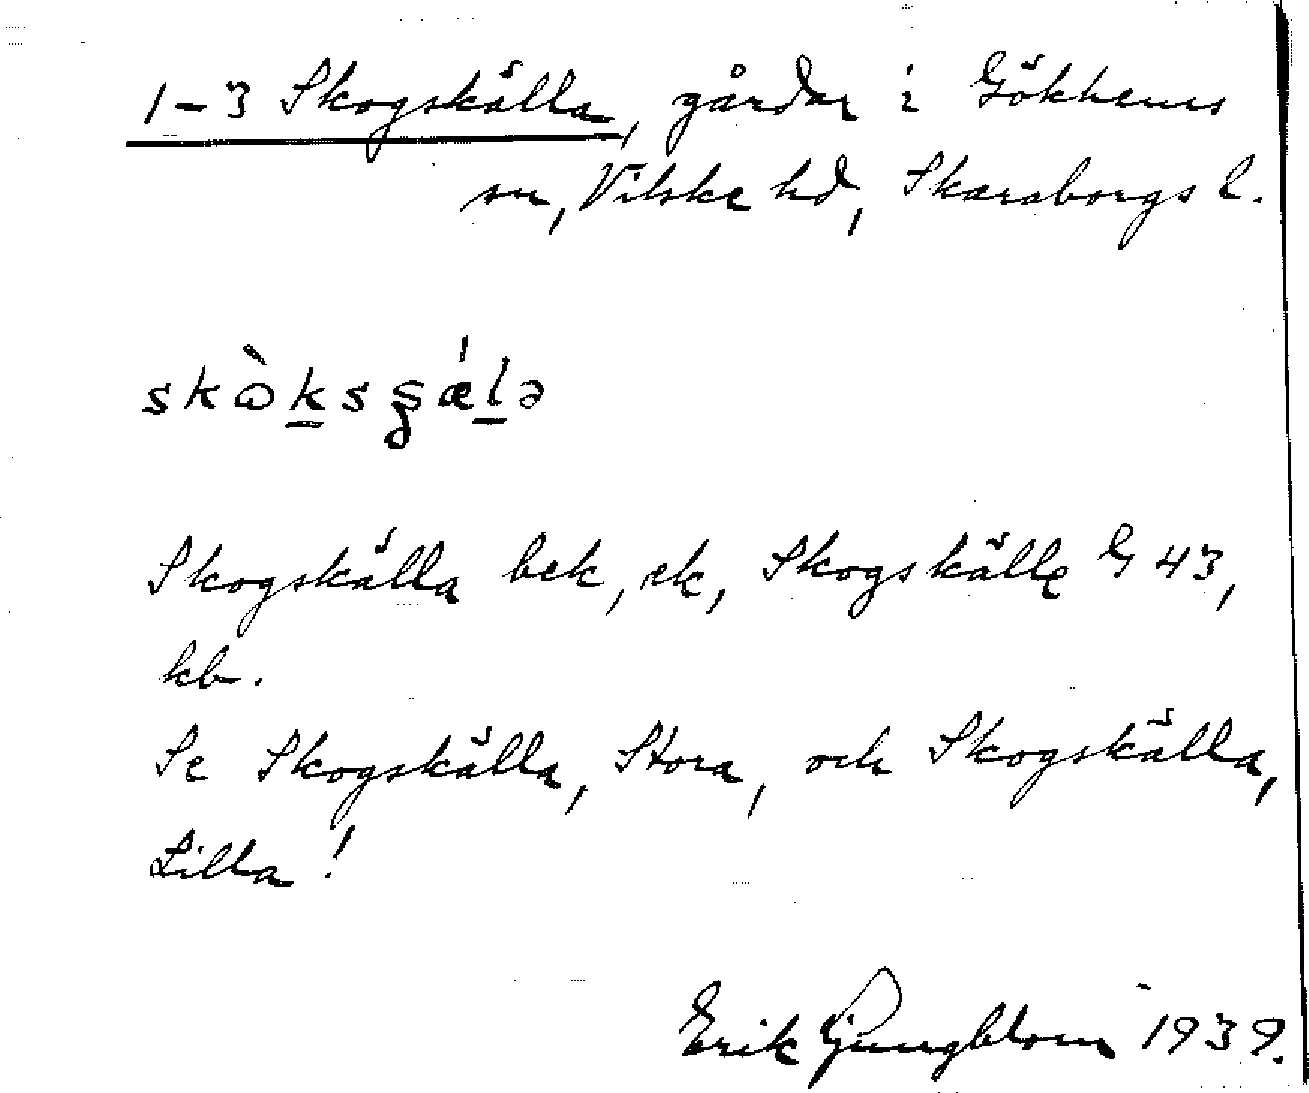 1-3 Skogskälla, gårdar i Gökhems
sn, Vilske hd, Skaraborgs l.
skὼksʂǽlə
Skogskälla bek, ek, Skogskälle G 43,
kb.
Se Skogskälla, Stora, och Skogskälla,
Lilla!
Erik Ljungblom 1939.